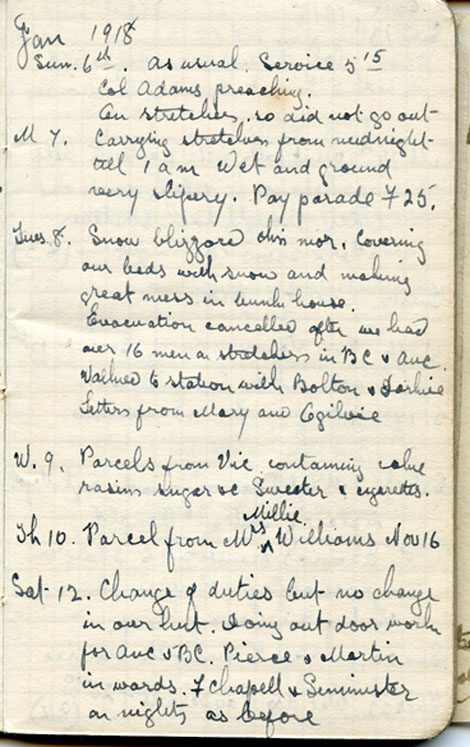 Jan 1918
Sun. 6th. as usual. Service 5 15
Col Adams preaching.
On stretchers, so did not go out
M 7. Carrying stretches from midnight
till 1 am Wet and ground
very slipery. Pay parade F 25.
Tues 8. Snow blizzard this mor. Covering
our beds with snow and making
great mess in house.
Evacuation cancelled after we had
over 16 men on stretchers in BC & Auc.
Walked to station with Bolton &
Letters from Mary and Ogilvie
W. 9. Parcels from Vic containing cake
rasins sugar &c Sweeter & cigerettes.
Millie
Th 10. Parcel from Mrs ^ Williams Nov 16
Sat 12. Change of duties but no change
in our hut. Doing out door work
for Auc & BC. Pierce & Martin
in wards. F Chapell &
on nights as before